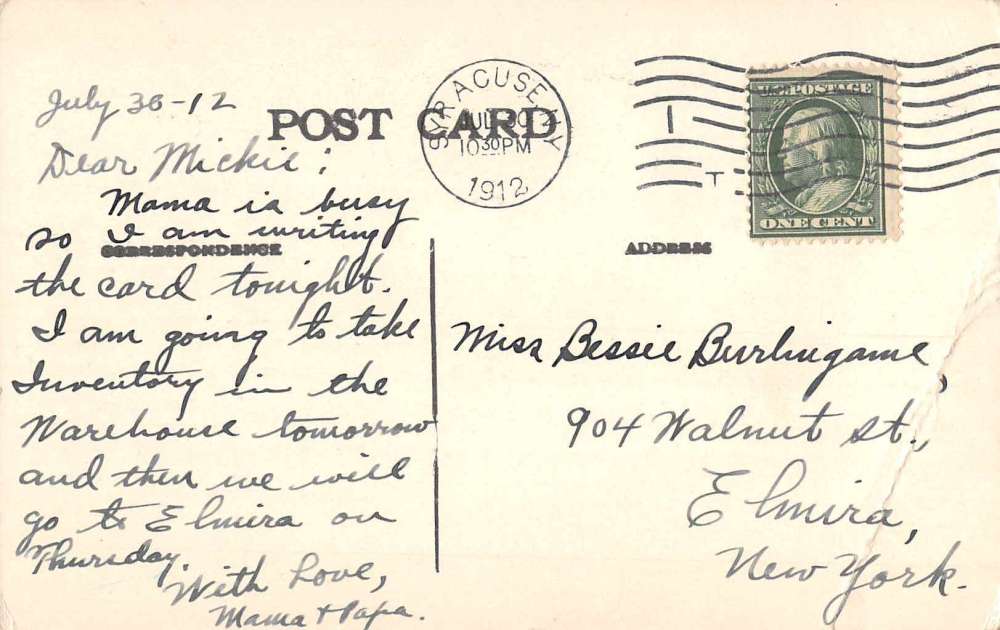 July 30-12
POST CARD
SYRACUSE, N.Y.
JUL 30
10 30 PM
1912
1
T
U.S. POSTAGE
ONE CENT
Dear Mickie:
Mama is busy
so I am writing
CORRESPONDENCE
the card tonight.
I am going to take
Inventory in the
Warehouse tomorrow
and then we will
go to Elmira on
Thursday.
With Love,
Mama & Papa.
ADDRESS
Miss Bessie Burlingame,
904 Walnut St.,
Elmira,
New York.